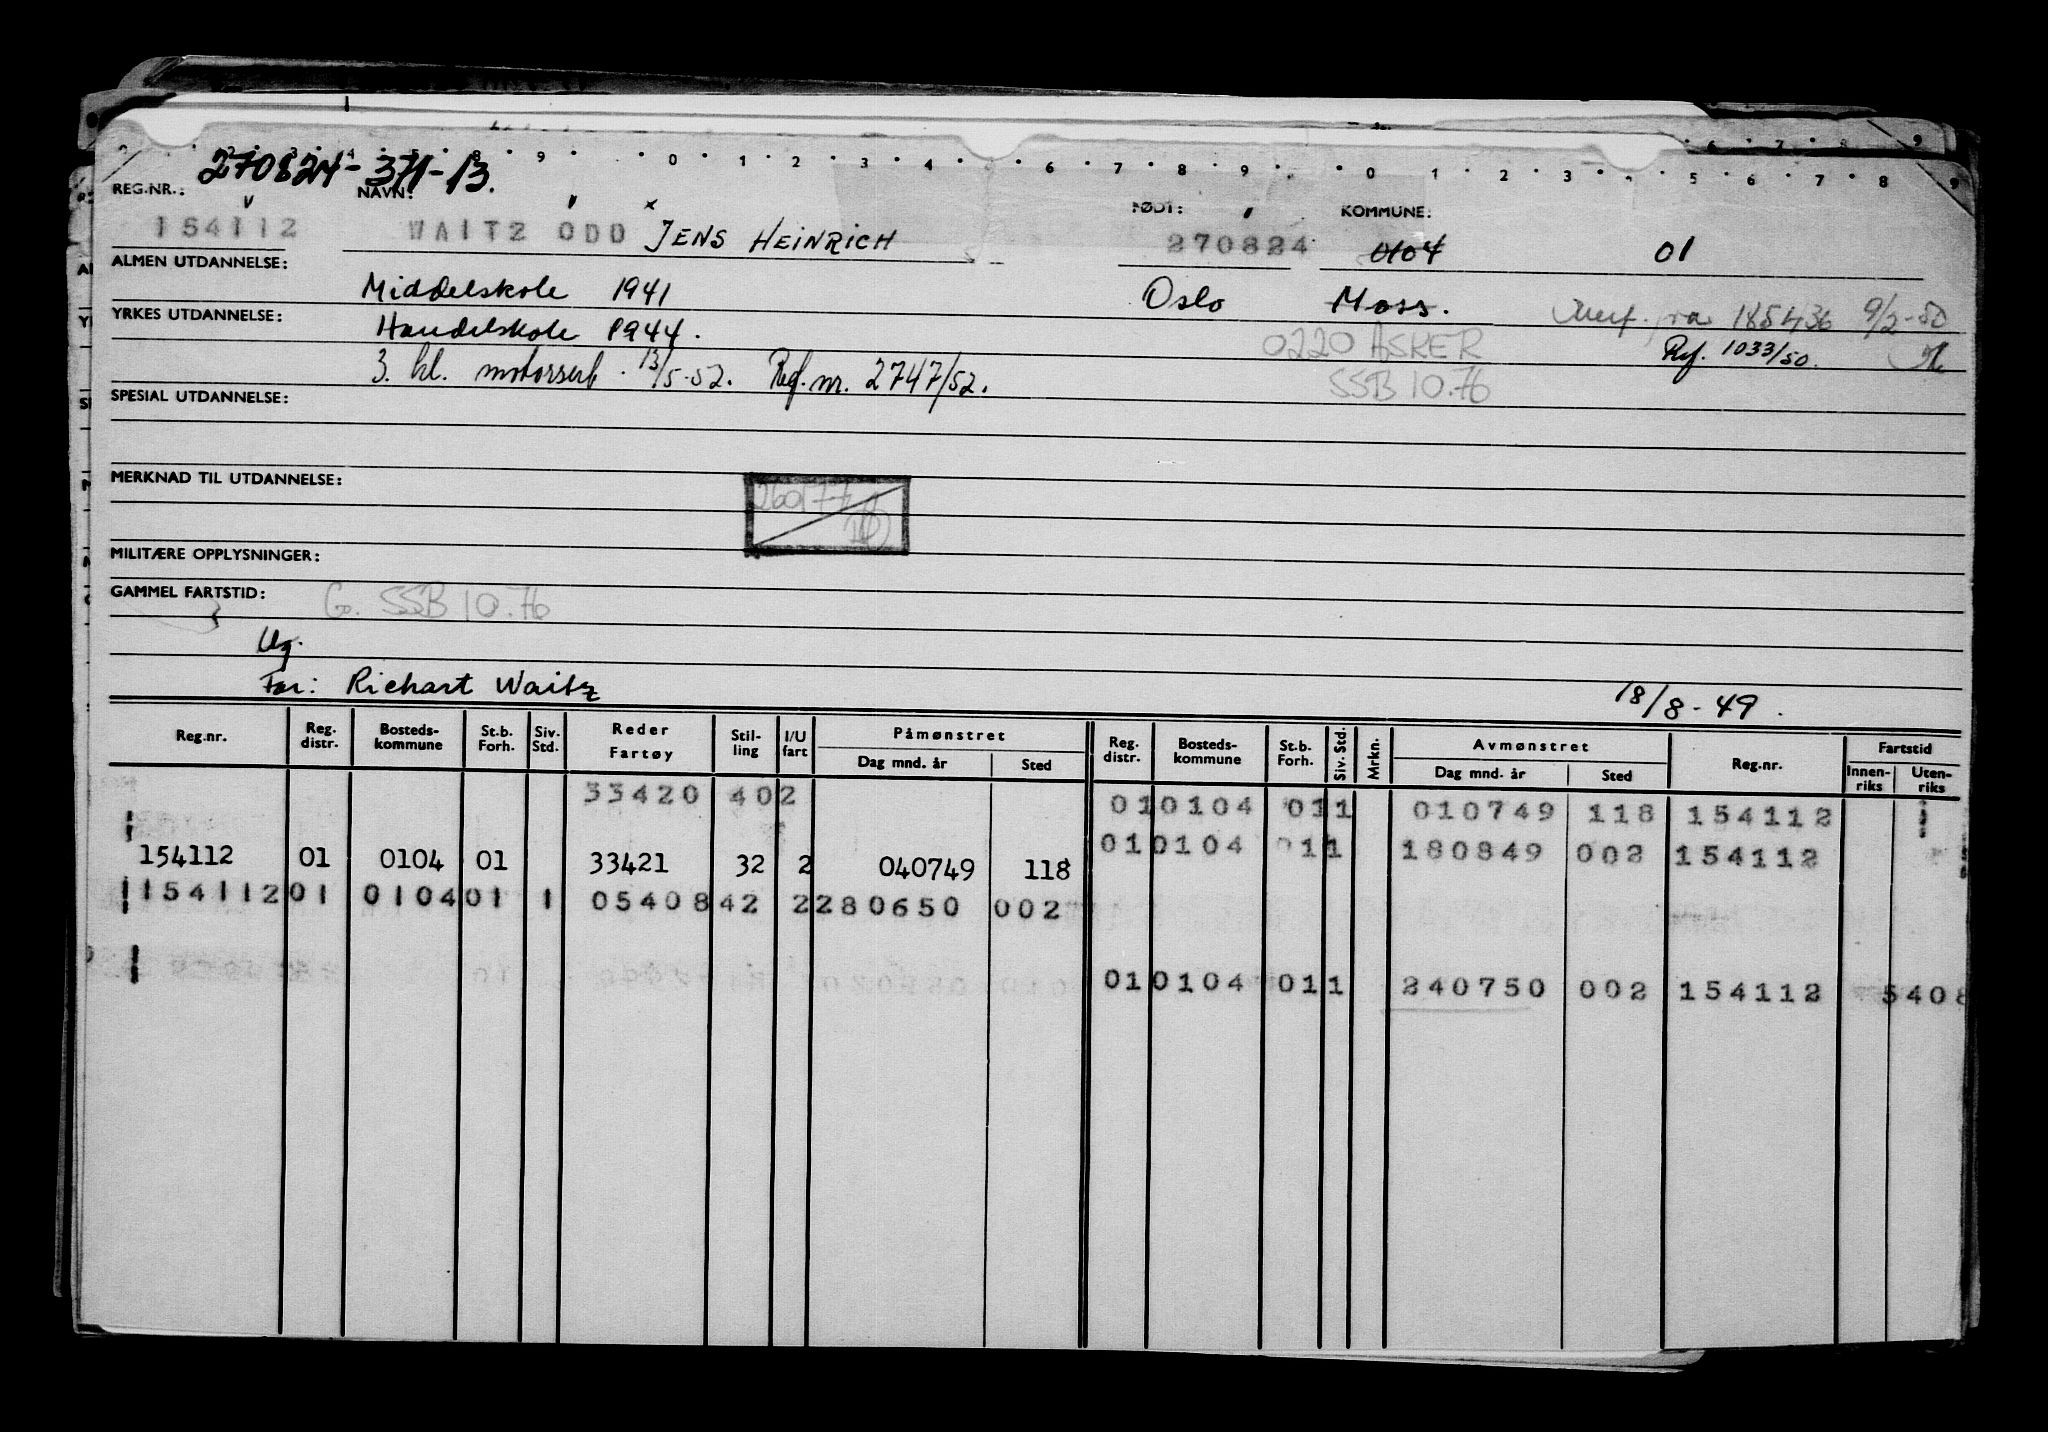 270824-371-13.
REG.NR.: NAVN: FØDT: KOMMUNE:
154112 WAITZ ODD JENS HEINRICH 270824 0104 01
ALMEN UTDANNELSE: Middelskole 1941 Oslo Moss. fra 185436 9/2-50
YRKES UTDANNELSE: Handelskole 1944. 0220 ASKER Ref. 1033/50.
3. kl. motorsert. 13/5-52. Ref. nr. 2747/52. SSB 10.76
SPESIAL UTDANNELSE:
MERKNAD TIL UTDANNELSE:
MILITÆRE OPPLYSNINGER:
GAMMEL FARTSTID: G. SSB 10.76
Ug.
Far: Richart Waitz 18/8-49.
Reg.nr. Reg. distr. Bosteds-kommune St.b. Forh. Siv. Std. Reder Fartøy Stil-ling I/U fart Påmønstret Dag mnd. år Sted Reg. distr. Bosteds-kommune St.b. Forh. Siv. Std. Mrkn. Avmønstret Dag mnd. år Sted Reg.nr. Fartstid Innen-riks Uten-riks
33420 402 01 0104 01 1 010749 118 154112
154112 01 0104 01 33421 32 2 040749 118 01 0104 01 1 180849 002 154112
154112 01 0104 01 1 05408 42 2 280650 002
01 0104 01 1 240750 002 154112 5408